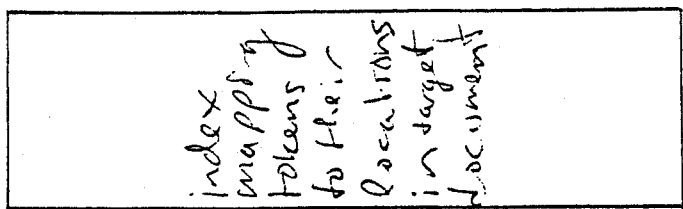 index
mapping
tokens
to their
locations
in target
document